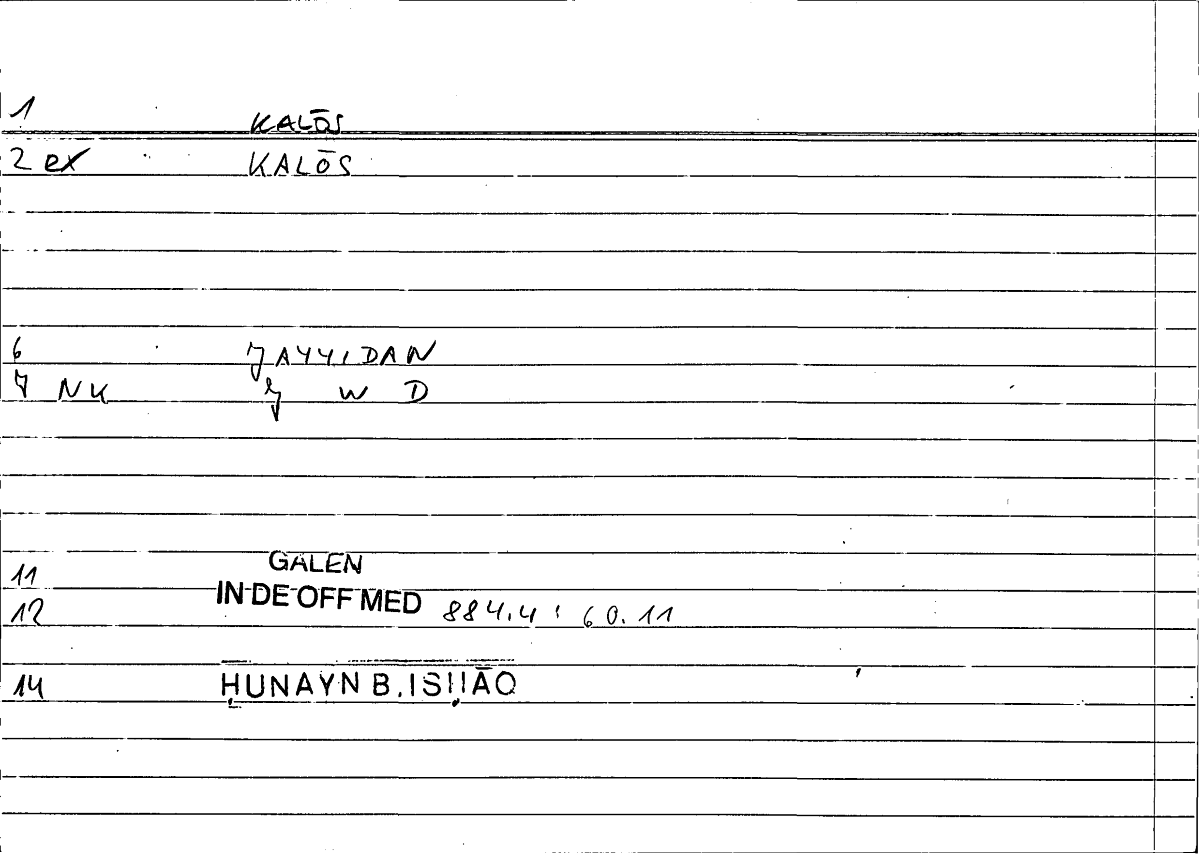 1 KALŌS
2 ex KALŌS
6 JAYYIDAN
7 NK J W D
GALEN
11
12 IN DE OFF MED 884.4 : 60.11
14 ḤUNAYN B. ISḤĀQ